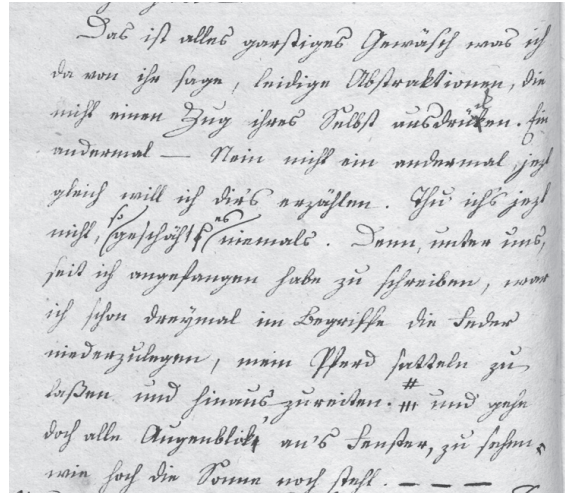 Das ist alles garstiges Gewäsch was ich
da von ihr sage, leidige Abstraktionen, die
nicht einen Zug ihres Selbst ausdrüken. Ein
andermal — Nein nicht ein andermal, jezt
gleich will ich dir's erzählen. Thu ich's jezt
nicht, so geschäh es niemals. Denn, unter uns,
seit ich angefangen habe zu schreiben, war
ich schon dreymal im Begriffe die Feder
niederzulegen, mein Pferd satteln zu
laßen und hinaus zu reiten. # und gehe
doch alle Augenblik an's Fenster, zu sehen,
wie hoch die Sonne noch steht. — — —